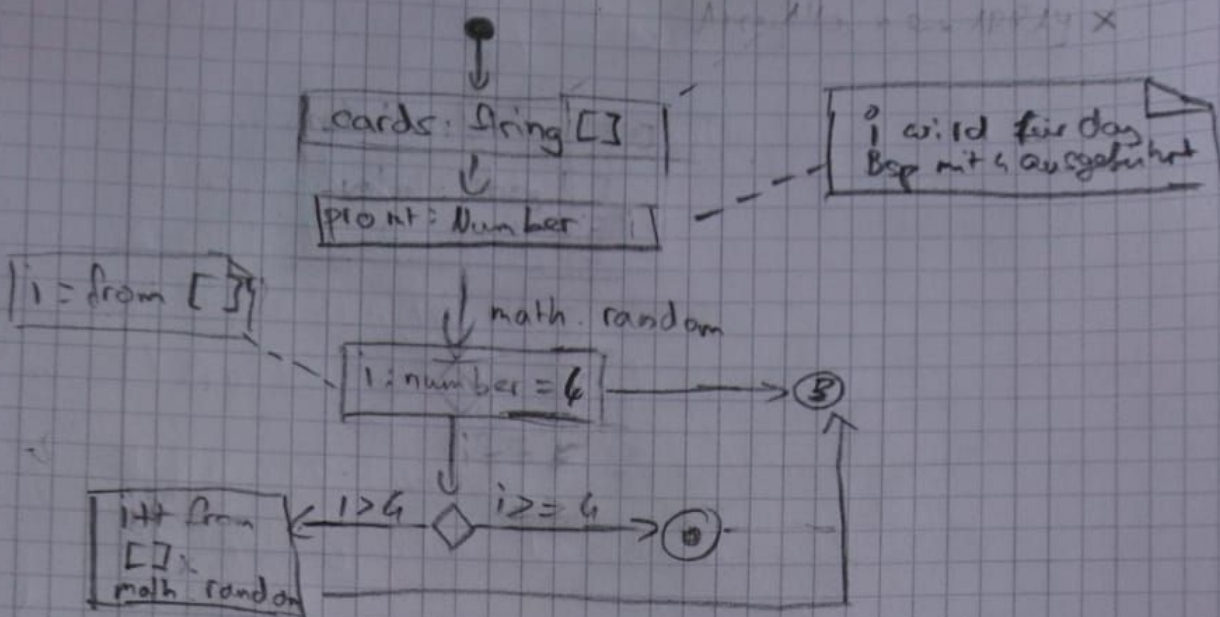 cards: String []
i wird für das
Bsp mit 4 ausgeführt
promt: Number
i = from []
math. random
i: number = 4
B
i>4
i>= 4
i++ from
[]
math random